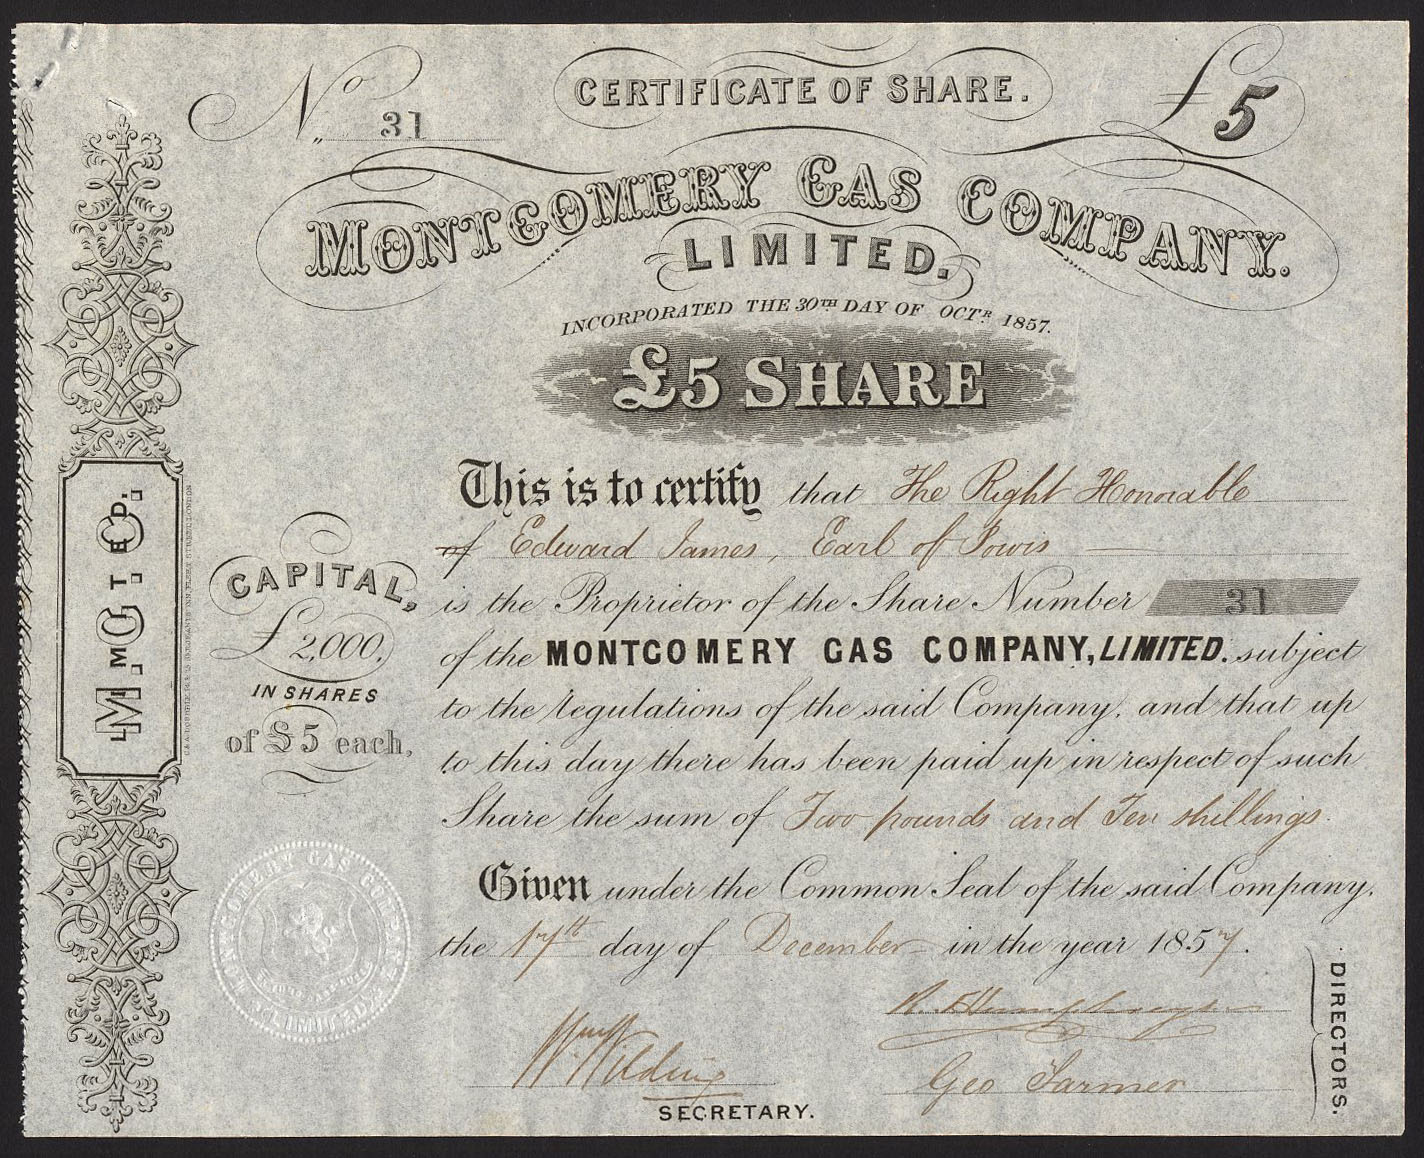 No 31
CERTIFICATE OF SHARE.
£5
MONTGOMERY GAS COMPANY.
LIMITED.
INCORPORATED THE 30TH DAY OF OCTR 1857.
£5 SHARE
This is to certify that The Right Honorable
of Edward James, Earl of Powis
is the Proprietor of the Share Number 31
of the MONTGOMERY GAS COMPANY, LIMITED. subject
to the regulations of the said Company, and that up
to this day there has been paid up in respect of such
Share the sum of Two pounds and Ten shillings.
Given under the Common Seal of the said Company,
the 17th day of December in the year 1857.
CAPITAL,
£2,000,
IN SHARES
of £5 each,
M.G.C.
LIMITED.
MONTGOMERY GAS COMPANY
LIMITED
Wm Wilding
SECRETARY.
Geo Farmer
DIRECTORS.